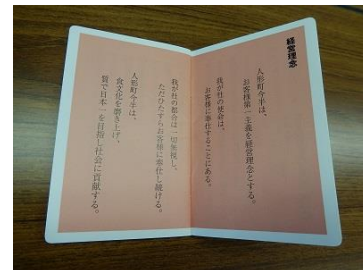 経営理念
人形町今半は、
お客様第一主義を経営理念とする。
我が社の使命は、
お客様に奉仕することにある。
我が社の都合は一切無視し、
ただひたすらお客様に奉仕し続ける。
人形町今半は、
食文化を磨き上げ、
質で日本一を目指し社会に貢献する。